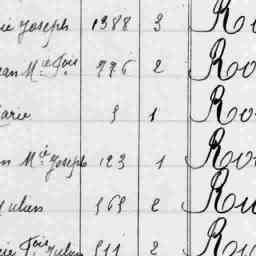 ie Joseph 1388 3 Ro
ean M.ie Fois 776 2 Ro
Marie 5 1 Ro
n M.ie Joseph 123 1 Ro
Julien 565 2 Ru
ie Fois Julien 511 2 Ru